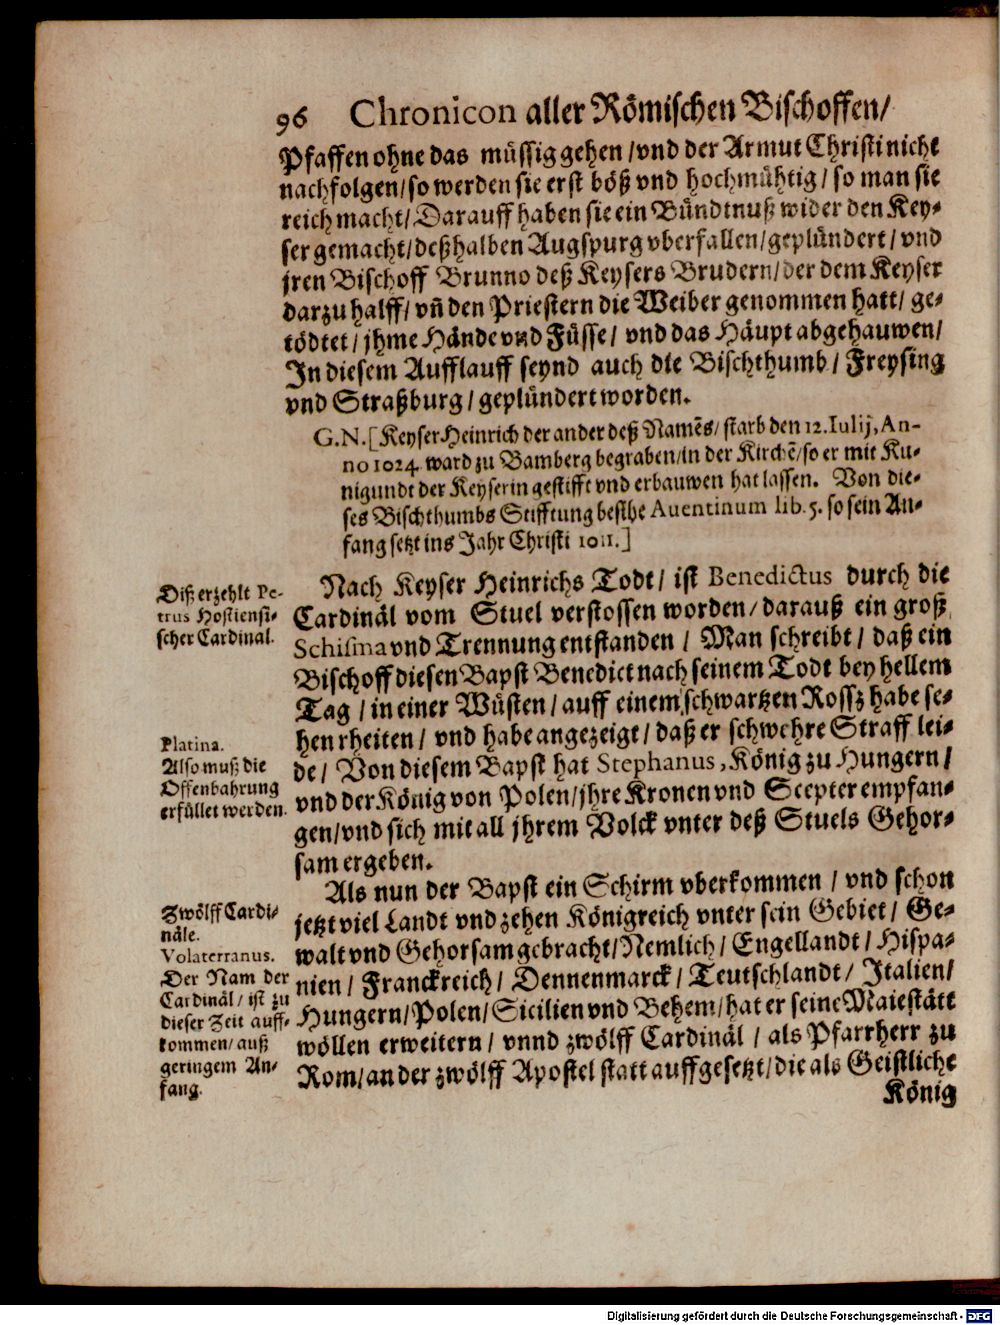 96 Chronicon aller Römischen Bischoffen/
Pfaffen ohne das müssig gehen/vnd der Armut Christi nicht
nachfolgen/so werden sie erst böß vnd hochmühtig/so man sie
reich macht/Darauff haben sie ein Bündtnuß wider den Key-
ser gemacht/deßhalben Augspurg vberfallen/geplündert/vnd
jren Bischoff Brunno deß Keysers Brudern/der dem Keyser
darzu halff/vñ den Priestern die Weiber genommen hatt/ge-
tödtet/jhme Hände vnd Füsse/vnd das Häupt abgehauwen/
In diesem Aufflauff seynd auch die Bischthumb/Freysing
vnd Straßburg/geplündert worden.
G.N.[Keyser Heinrich der ander deß Namẽs/starb den 12. Iulij, An-
no 1024. ward zu Bamberg begraben/in der Kirchẽ/so er mit Ku-
nigundt der Keyserin gestifft vnd erbauwen hat lassen. Von die-
ses Bischthumbs Stifftung besihe Auentinum lib. 5. so sein An-
fang setzt ins Jahr Christi 1011.]
Nach Keyser Heinrichs Todt/ist Benedictus durch die
Cardinäl vom Stuel verstossen worden/darauß ein groß
Schisma vnd Trennung entstanden/Man schreibt/daß ein
Bischoff diesen Bapst Benedict nach seinem Todt bey hellem
Tag/in einer Wüsten/auff einem schwartzen Rossz habe se-
hen rheiten/vnd habe angezeigt/daß er schwehre Straff lei-
de/Von diesem Bapst hat Stephanus, König zu Hungern/
vnd der König von Polen/jhre Kronen vnd Scepter empfan-
gen/vnd sich mit all jhrem Volck vnter deß Stuels Gehor-
sam ergeben.
Als nun der Bapst ein Schirm vberkommen/vnd schon
jetzt viel Landt vnd zehen Königreich vnter sein Gebiet/Ge-
walt vnd Gehorsam gebracht/Nemlich/Engellandt/Hispa-
nien/Franckreich/Dennenmarck/Teutschlandt/Italien/
Hungern/Polen/Sicilien vnd Behem/hat er seine Maiestätt
wöllen erweitern/vnnd zwölff Cardinäl/als Pfarrherr zu
Rom/an der zwölff Apostel statt auffgesetzt/die als Geistliche
König
Diß erzehlt Pe-
trus Hostiensi-
scher Cardinal.
Platina.
Also muß die
Offenbahrung
erfüllet werden.
Zwölff Cardi-
näle.
Volaterranus.
Der Nam der
Cardinäl/ist zu
dieser Zeit auff-
kommen/auß
geringem An-
fang.
Digitalisierung gefördert durch die Deutsche Forschungsgemeinschaft - DFG